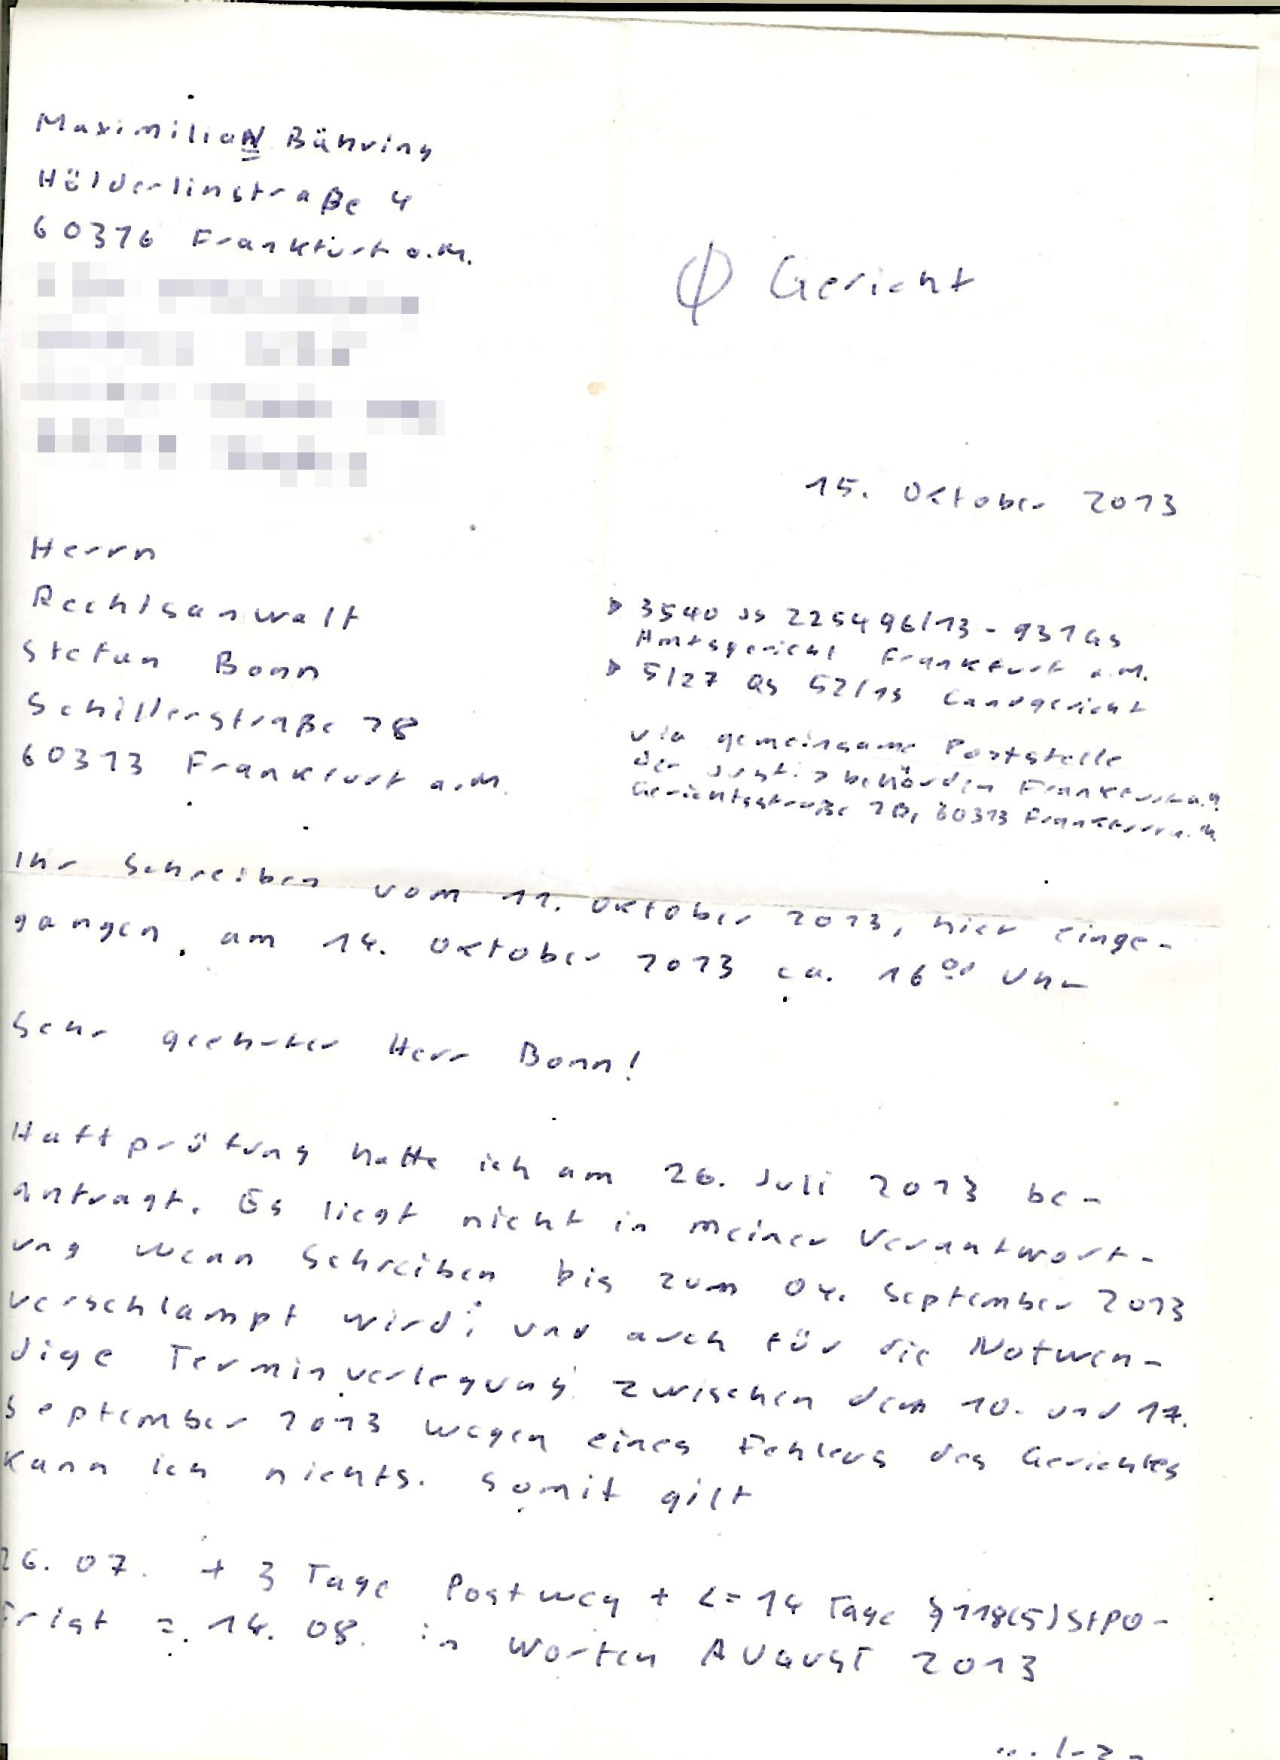 MaximiliaN Bähring
Hölderlinstraße 4
60316 Frankfurt a.M.
Φ Gericht
15. Oktober 2013
Herrn
Rechtsanwalt
Stefan Bonn
Schillerstraße 28
60313 Frankfurt a.M.
▸ 3540 Js 225496/13 - 931 Gs
Amtsgericht Frankfurt a.M.
▸ 5/27 Qs 52/13 Landgericht
via gemeinsame Poststelle
der Justizbehörden Frankfurt a.M.
Gerichtsstraße 2B, 60313 Frankfurt a.M.
Ihr Schreiben vom 11. Oktober 2013, hier einge-
gangen am 14. Oktober 2013 ca. 16 00 Uhr
Sehr geehrter Herr Bonn!
Haftprüfung hatte ich am 26. Juli 2013 be-
antragt. Es liegt nicht in meiner Verantwort-
ung wenn Schreiben bis zum 04. September 2013
verschlampt wird; und auch für die Notwen-
dige Terminverlegung zwischen dem 10. und 17.
September 2013 wegen eines Fehlers des Gerichtes
kann ich nichts. Somit gilt
26. 07. + 3 Tage Postweg + <= 14 Tage §118(5) StPO-
Frist = 14. 08. in Worten AUGUST 2013
... /-2-